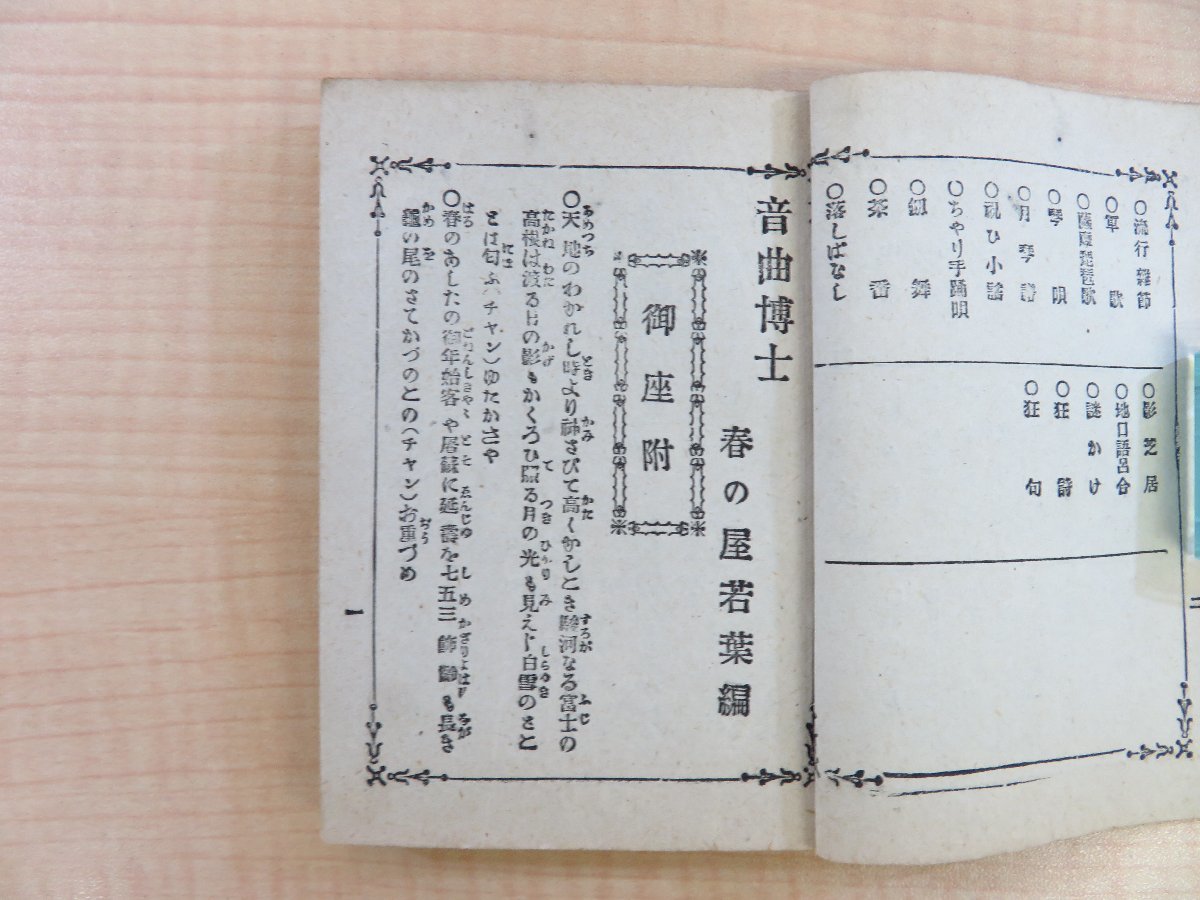 ○流行雜節
○軍歌
○薩摩琵琶歌
○琴唄
○月琴譜
○祝ひ小謠
○ちやり手踊唄
○劔舞
○茶番
○落しばなし
○影芝居
○地口語呂合
○謎かけ
○狂詩
○狂句
二
音曲博士
春の屋若葉編
御座附
○天地のわかれし時より神さびて高くかしとき駿河なる富士の
高根は渡る日の影もかくろひ照る月の光も見えじ白雪のさと
とは匂ふ(チャン)ゆたかさや
○春のあしたの御年始客や屠蘇に延壽を七五三飾も長き
龜の尾のさてかづのとの(チャン)お重づめ
一